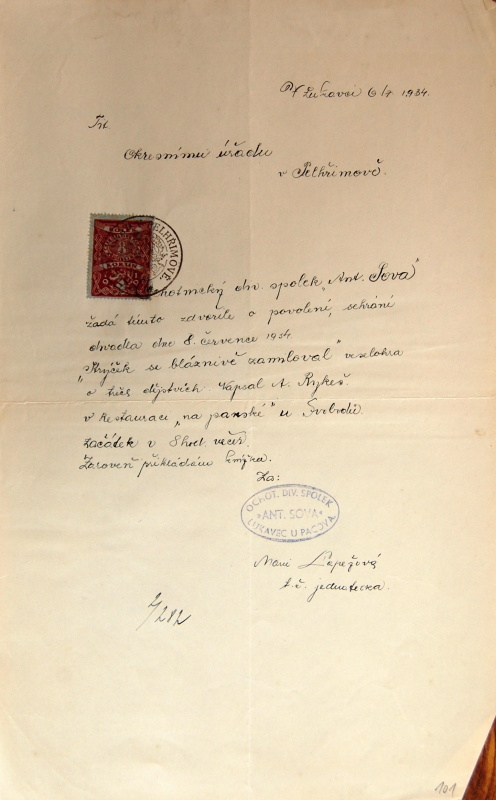 Lukavci 6/7 1934.
Okresnímu úřadu
v Pelhřimově.
PELHŘIMOVĚ
Ochotnický div. spolek „Ant. Sova"
žádá tímto zdvořile o povolení, sehrání
divadla dne 8. července 1934
„Strýček se bláznivě zamiloval" veselohra
o třech dějstvích. Napsal A. Rykeš.
v restauraci „na panské" u Svobodů.
Začátek v 8 hod. večer.
Zároveň přikládám knížku.
Za:
OCHOT. DIV. SPOLEK
"ANT. SOVA"
LUKAVEC U PACOVA.
t. č. jednatelka.
101